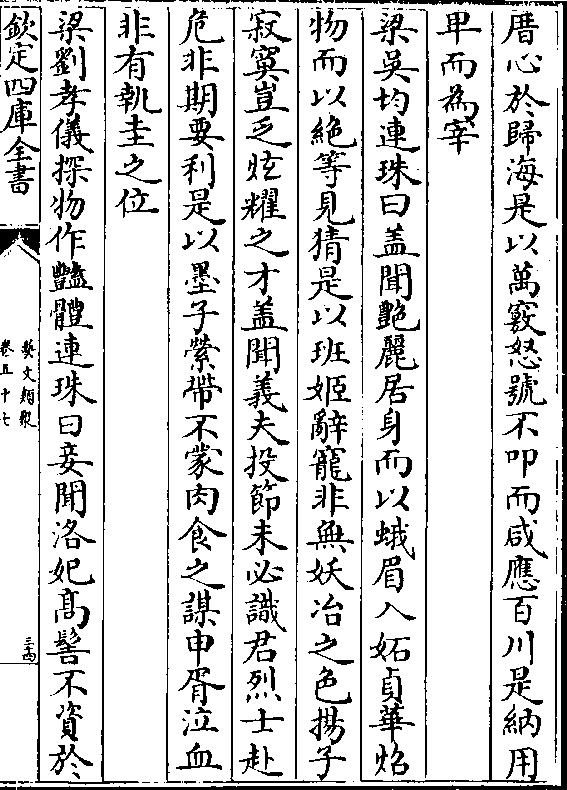 厝心於歸海是以萬竅怒號不叩而咸應百川是納用
卑而為宰
梁吳均連珠曰盖聞艷麗居身而以蛾眉入妬貞華炤
物而以絶等見猜是以班姬辭寵非無妖冶之色揚子
寂寞豈乏炫耀之才盖聞義夫投節未必識君烈士赴
危非期要利是以墨子縈帶不蒙肉食之謀申胥泣血
非有執圭之位
梁劉孝儀探物作豔體連珠曰妾聞洛妃髙髻不資於
欽定四庫全書
藝文類聚
卷五十七
三十四